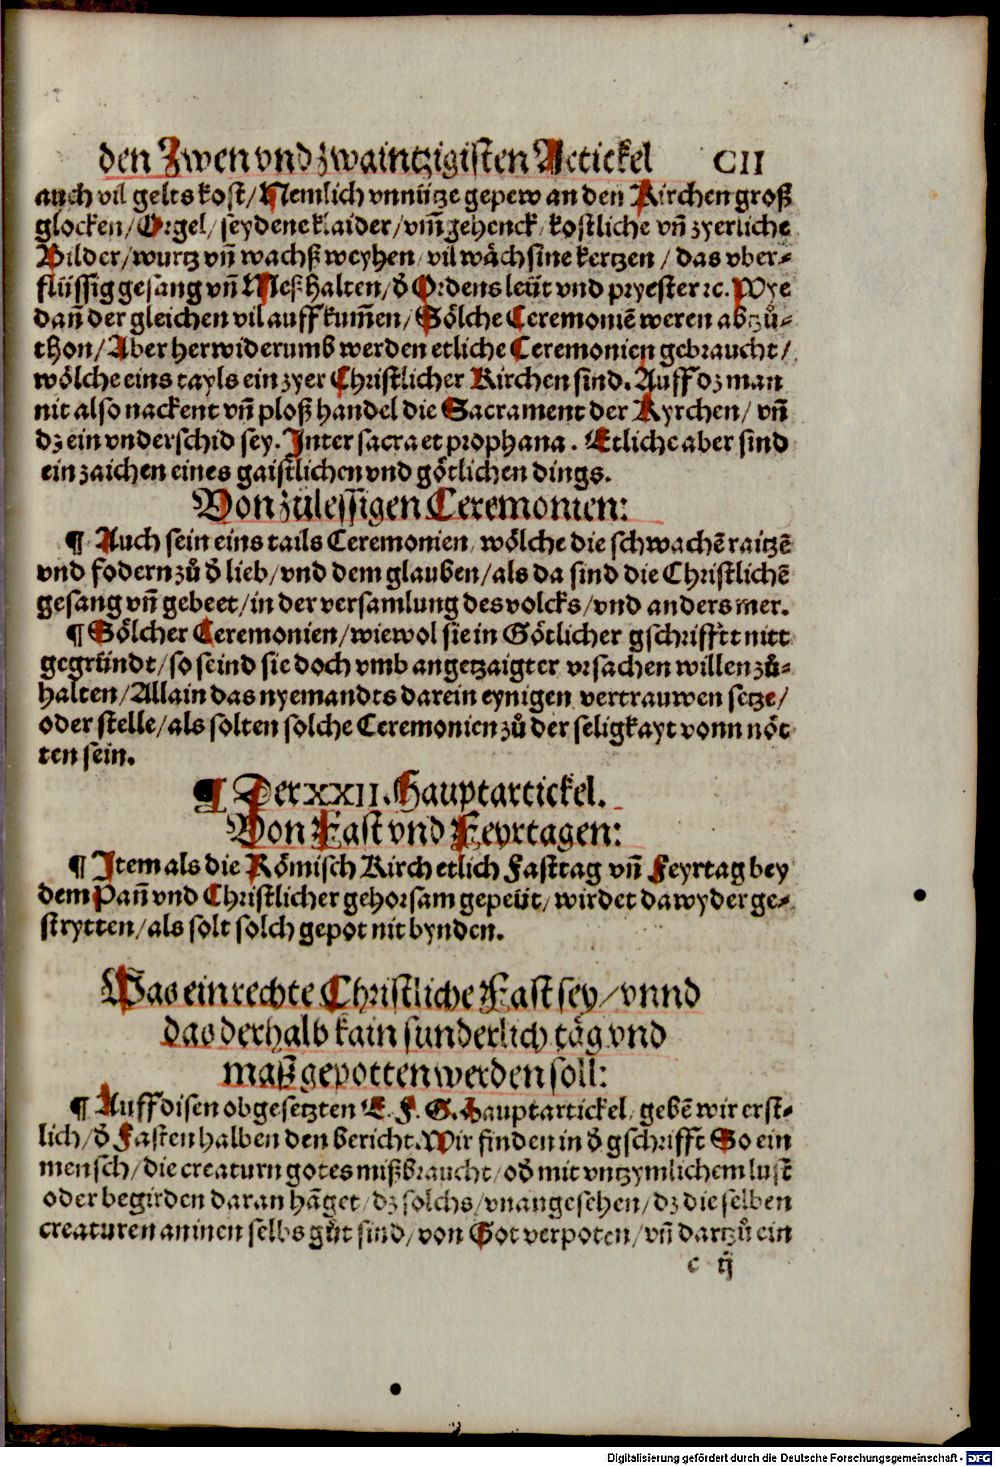 den Zwen vnd zwaintzigisten Artickel CII
auch vil gelts kost/ Nemlich vnnütze gepew an den Kirchen groß
glocken/ Orgel/ seydene klaider/ vm̄ gehenck/ kostliche vn̄ zyerliche
Bilder/ wurtz vn̄ wachß weyhen/ vil wächsine kertzen/ das vber-
flüssig gesang vn̄ Meß halten/ d̄ Ordens leüt vnd pryester ꝛc. Wye
dan̄ der gleichen vil auffkum̄en/ Sölche Ceremoniē weren abzů-
thon/ Aber herwiderumb werden etliche Ceremonien gebraucht/
wölche eins tayls ein zyer Christlicher Kirchen sind. Auff dz man
nit also nackent vn̄ ploß handel die Sacrament der Kyrchen/ vn̄
dz ein vnderschid sey. Inter sacra et prophana. Etliche aber sind
ein zaichen eines gaistlichen vnd götlichen dings.
Von zůlessigen Ceremonien:
¶ Auch sein eins tails Ceremonien/ wölche die schwachē raitzē
vnd fodern zů d̄ lieb/ vnd dem glauben/ als da sind die Christlichē
gesang vn̄ gebeet/ in der versamlung des volcks/ vnd anders mer.
¶ Sölcher Ceremonien/ wiewol sie in Götlicher gschrifft nitt
gegründt/ so seind sie doch vmb angetzaigter vrsachen willen zů-
halten/ Allain das nyemandts darein eynigen vertrauwen setze/
oder stelle/ als solten solche Ceremonien zů der seligkayt vonn nöt
ten sein.
¶ Der XXII. Hauptartickel.
Von Fast vnd Feyrtagen:
¶ Item als die Römisch Kirch etlich Fasttag vn̄ Feyrtag bey
dem Pan̄ vnd Christlicher gehorsam gepeüt/ wirdet dawyder ge-
strytten/ als solt solch gepot nit bynden.
Was ein rechte Christliche Fast sey/ vnnd
das derhalb kain sunderlich täg vnd
maß gepotten werden soll:
¶ Auff disen obgesetzten E. F. G. Hauptartickel/ gebē wir erst-
lich/ d̄ Fasten halben den bericht. Wir finden in d̄ gschrifft So ein
mensch/ die creaturn gotes mißbraucht/ od̄ mit vntzymlichem lust
oder begirden daran hāget/ dz solchs/ vnangesehen/ dz die selben
creaturen an inen selbs gůt sind/ von Got verpoten/ vn̄ dartzů ein
c ij
Digitalisierung gefördert durch die Deutsche Forschungsgemeinschaft - DFG